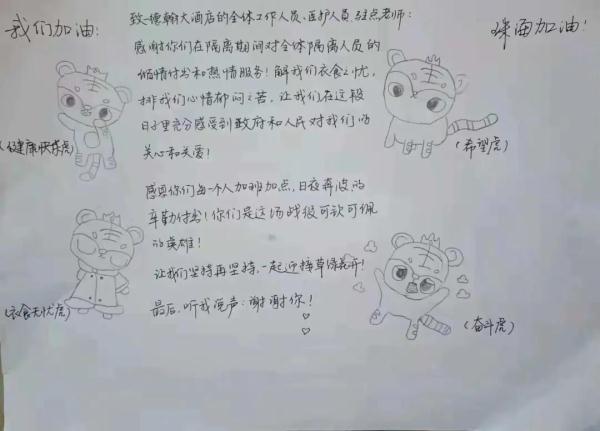 我们加油!
致-德翰大酒店的全体工作人员、医护人员、驻点老师:
珠海加油!
感谢你们在隔离期间对全体隔离人员的
倾情付出和热情服务!解我们衣食之忧,
排我们心情郁闷之苦,让我们在这段
日子里充分感受到政府和人民对我们的
关心和关爱!
(健康快乐虎)
(希望虎)
感恩你们每一个人加班加点,日夜奔波的
辛勤付出!你们是这场战役可钦可佩
的英雄!
让我们坚持再坚持,一起迎接草绿花开!
最后,听我说声:谢谢你!
(衣食无忧虎)
(奋斗虎)